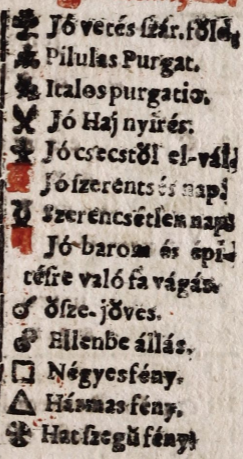 Jó vetés szár. főld,
Pilulas Purgat.
Italos purgatio.
Jó Haj nyirés.
Jó csecstől el-vál,
Jó szerentsés nap
Szerencsétlen nap
Jó barom és épi-
tésre való fa vágás.
ősze-jőves.
Ellenbe állás.
Négyes fény.
Hármas fény.
Hatszegű fény